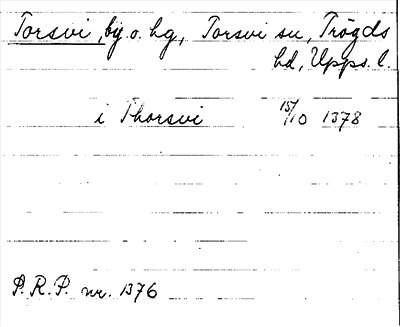 Torsvi, by o. hg, Torsvi sn, Trögds
hd, Upps. l.
i Thorsvi 15/10 1378
P.R.P. nr. 1376